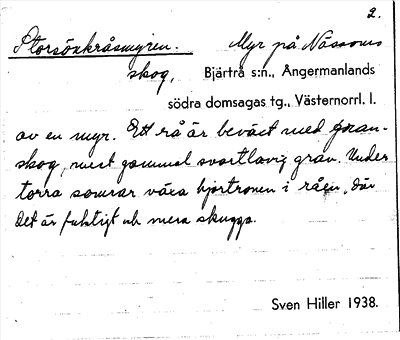 2.
Storsönkråsmyren. Myr på Nässoms
skog, Bjärtrå s:n., Ångermanlands
södra domsagas tg., Västernorrl. l.
av en myr. Ett rå är beväxt med gran-
skog, mest gammal svartlavig gran. Under
torra somrar växa hjortronen i råen, där
det är fuktigt och mera skugga.
Sven Hiller 1938.